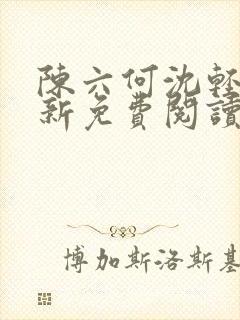 陳六何沈輕
新免費閱讀
博加斯洛斯基